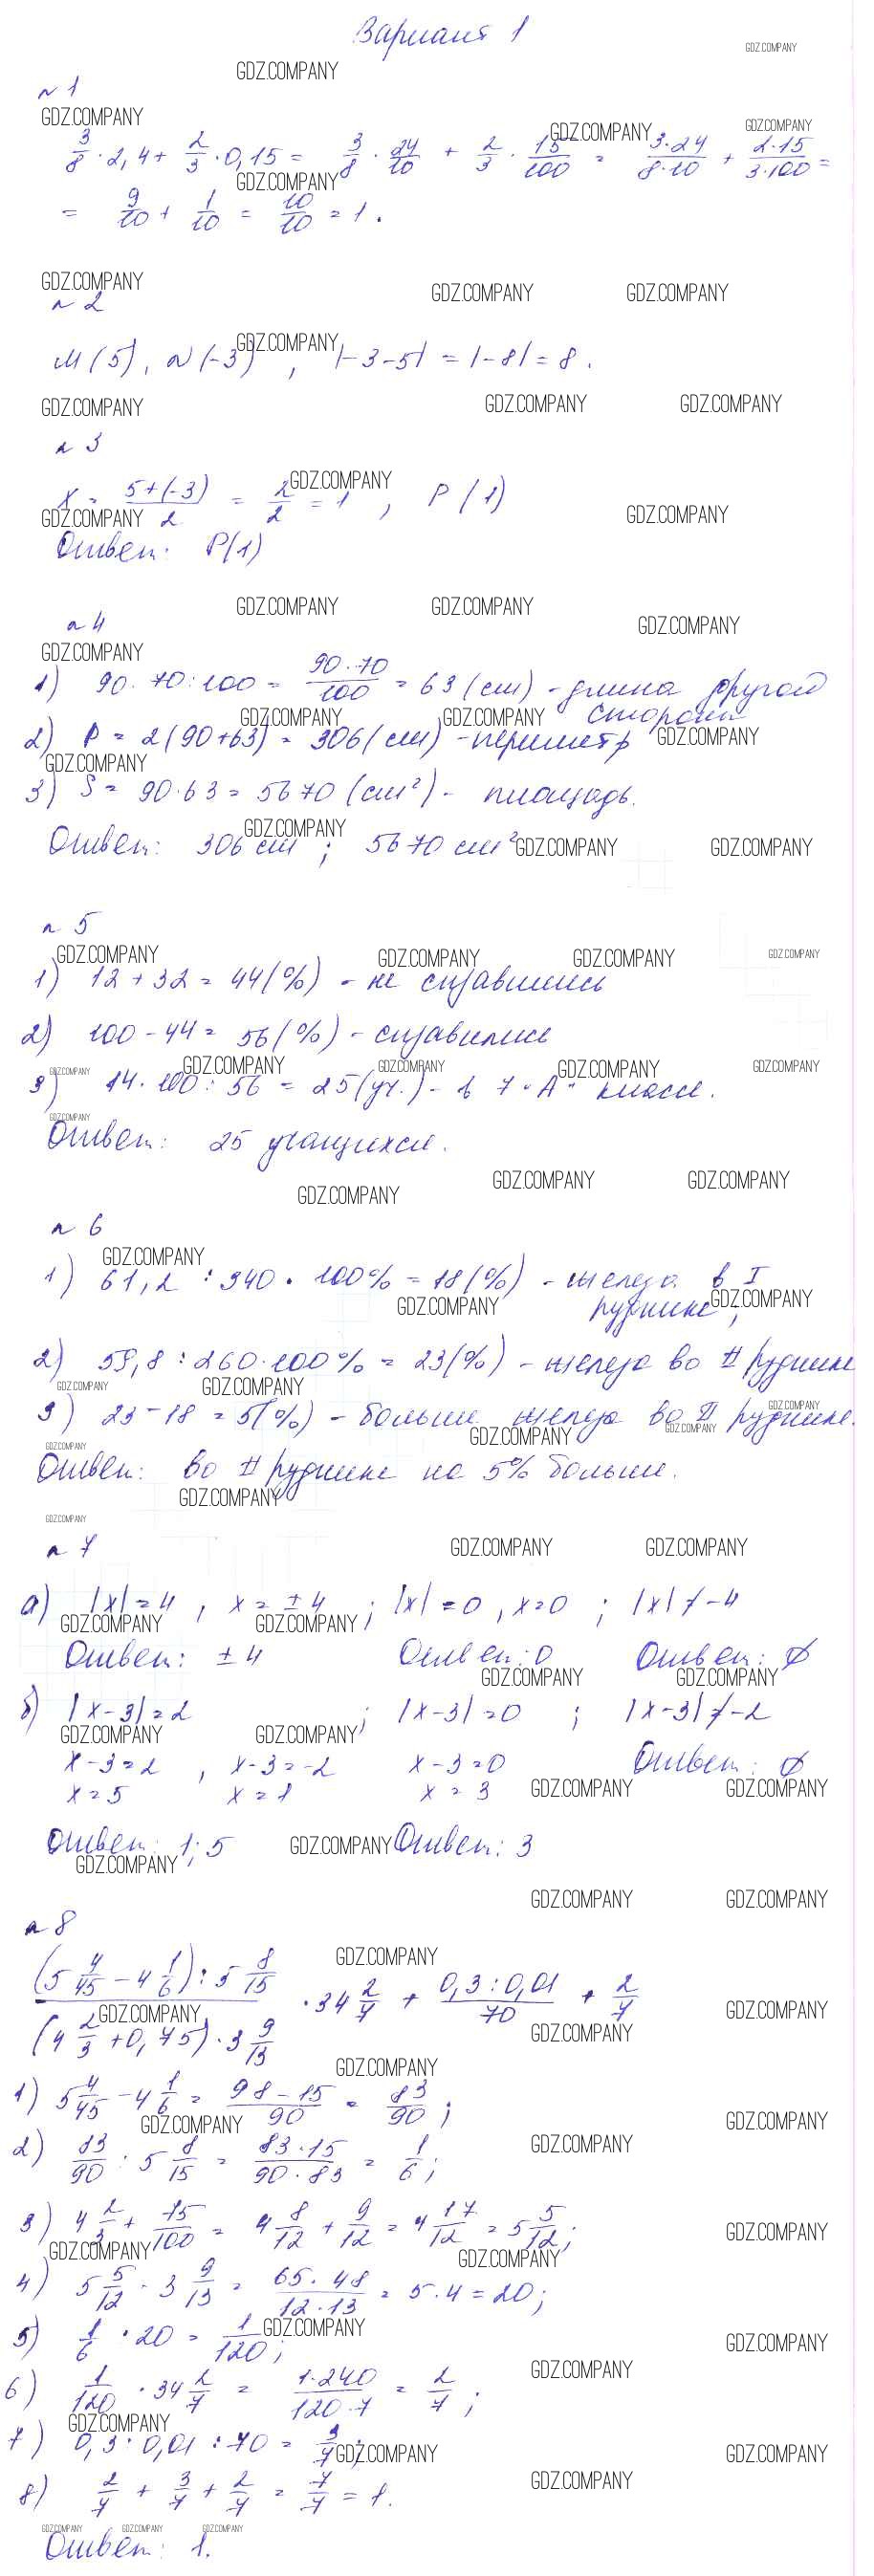 Вариант 1
GDZ.COMPANY
№ 1
3/8 · 2,4 + 2/3 · 0,15 = 3/8 · 24/10 + 2/3 · 15/100 = 3·24/8·10 + 2·15/3·100 =
= 9/10 + 1/10 = 10/10 = 1.
№ 2
M(5), N(-3), |-3-5| = |-8| = 8.
№ 3
x = 5+(-3)/2 = 2/2 = 1, P(1)
Ответ: P(1)
№ 4
1) 90·70:100 = 90·70/100 = 63 (см) - длина другой
стороны
2) P = 2(90+63) = 306 (см) - периметр
3) S = 90·63 = 5670 (см²) - площадь.
Ответ: 306 см; 5670 см²
№ 5
1) 12 + 32 = 44 (%) - не справились
2) 100 - 44 = 56 (%) - справились
3) 14·100:56 = 25 (уч.) - в 7 "А" классе.
Ответ: 25 учащихся.
№ 6
1) 61,2 : 340 · 100% = 18 (%) - железа в I
руднике;
2) 59,8 : 260·100% = 23 (%) - железа во II руднике
3) 23 - 18 = 5 (%) - больше железа во II руднике.
Ответ: во II руднике на 5% больше.
№ 7
а) |x| = 4, x = ±4; |x| = 0, x = 0; |x| ≠ -4
Ответ: ±4 Ответ: 0 Ответ: ∅
б) |x-3| = 2; |x-3| = 0; |x-3| ≠ -2
x-3=2, x-3=-2 x-3=0 Ответ: ∅
x=5 x=1 x=3
Ответ: 1; 5 Ответ: 3
№ 8
(5 4/45 - 4 1/6) : 5 8/15 / (4 2/3 + 0,75) · 3 9/13 · 34 2/7 + 0,3:0,01/70 + 2/7
1) 5 4/45 - 4 1/6 = 98-15/90 = 83/90;
2) 83/90 : 5 8/15 = 83·15/90·83 = 1/6;
3) 4 2/3 + 75/100 = 4 8/12 + 9/12 = 4 17/12 = 5 5/12;
4) 5 5/12 · 3 9/13 = 65·48/12·13 = 5·4 = 20;
5) 1/6 · 20 = 1/120;
6) 1/120 · 34 2/7 = 1·240/120·7 = 2/7;
7) 0,3 : 0,01 : 70 = 3/7;
8) 2/7 + 3/7 + 2/7 = 7/7 = 1.
Ответ: 1.